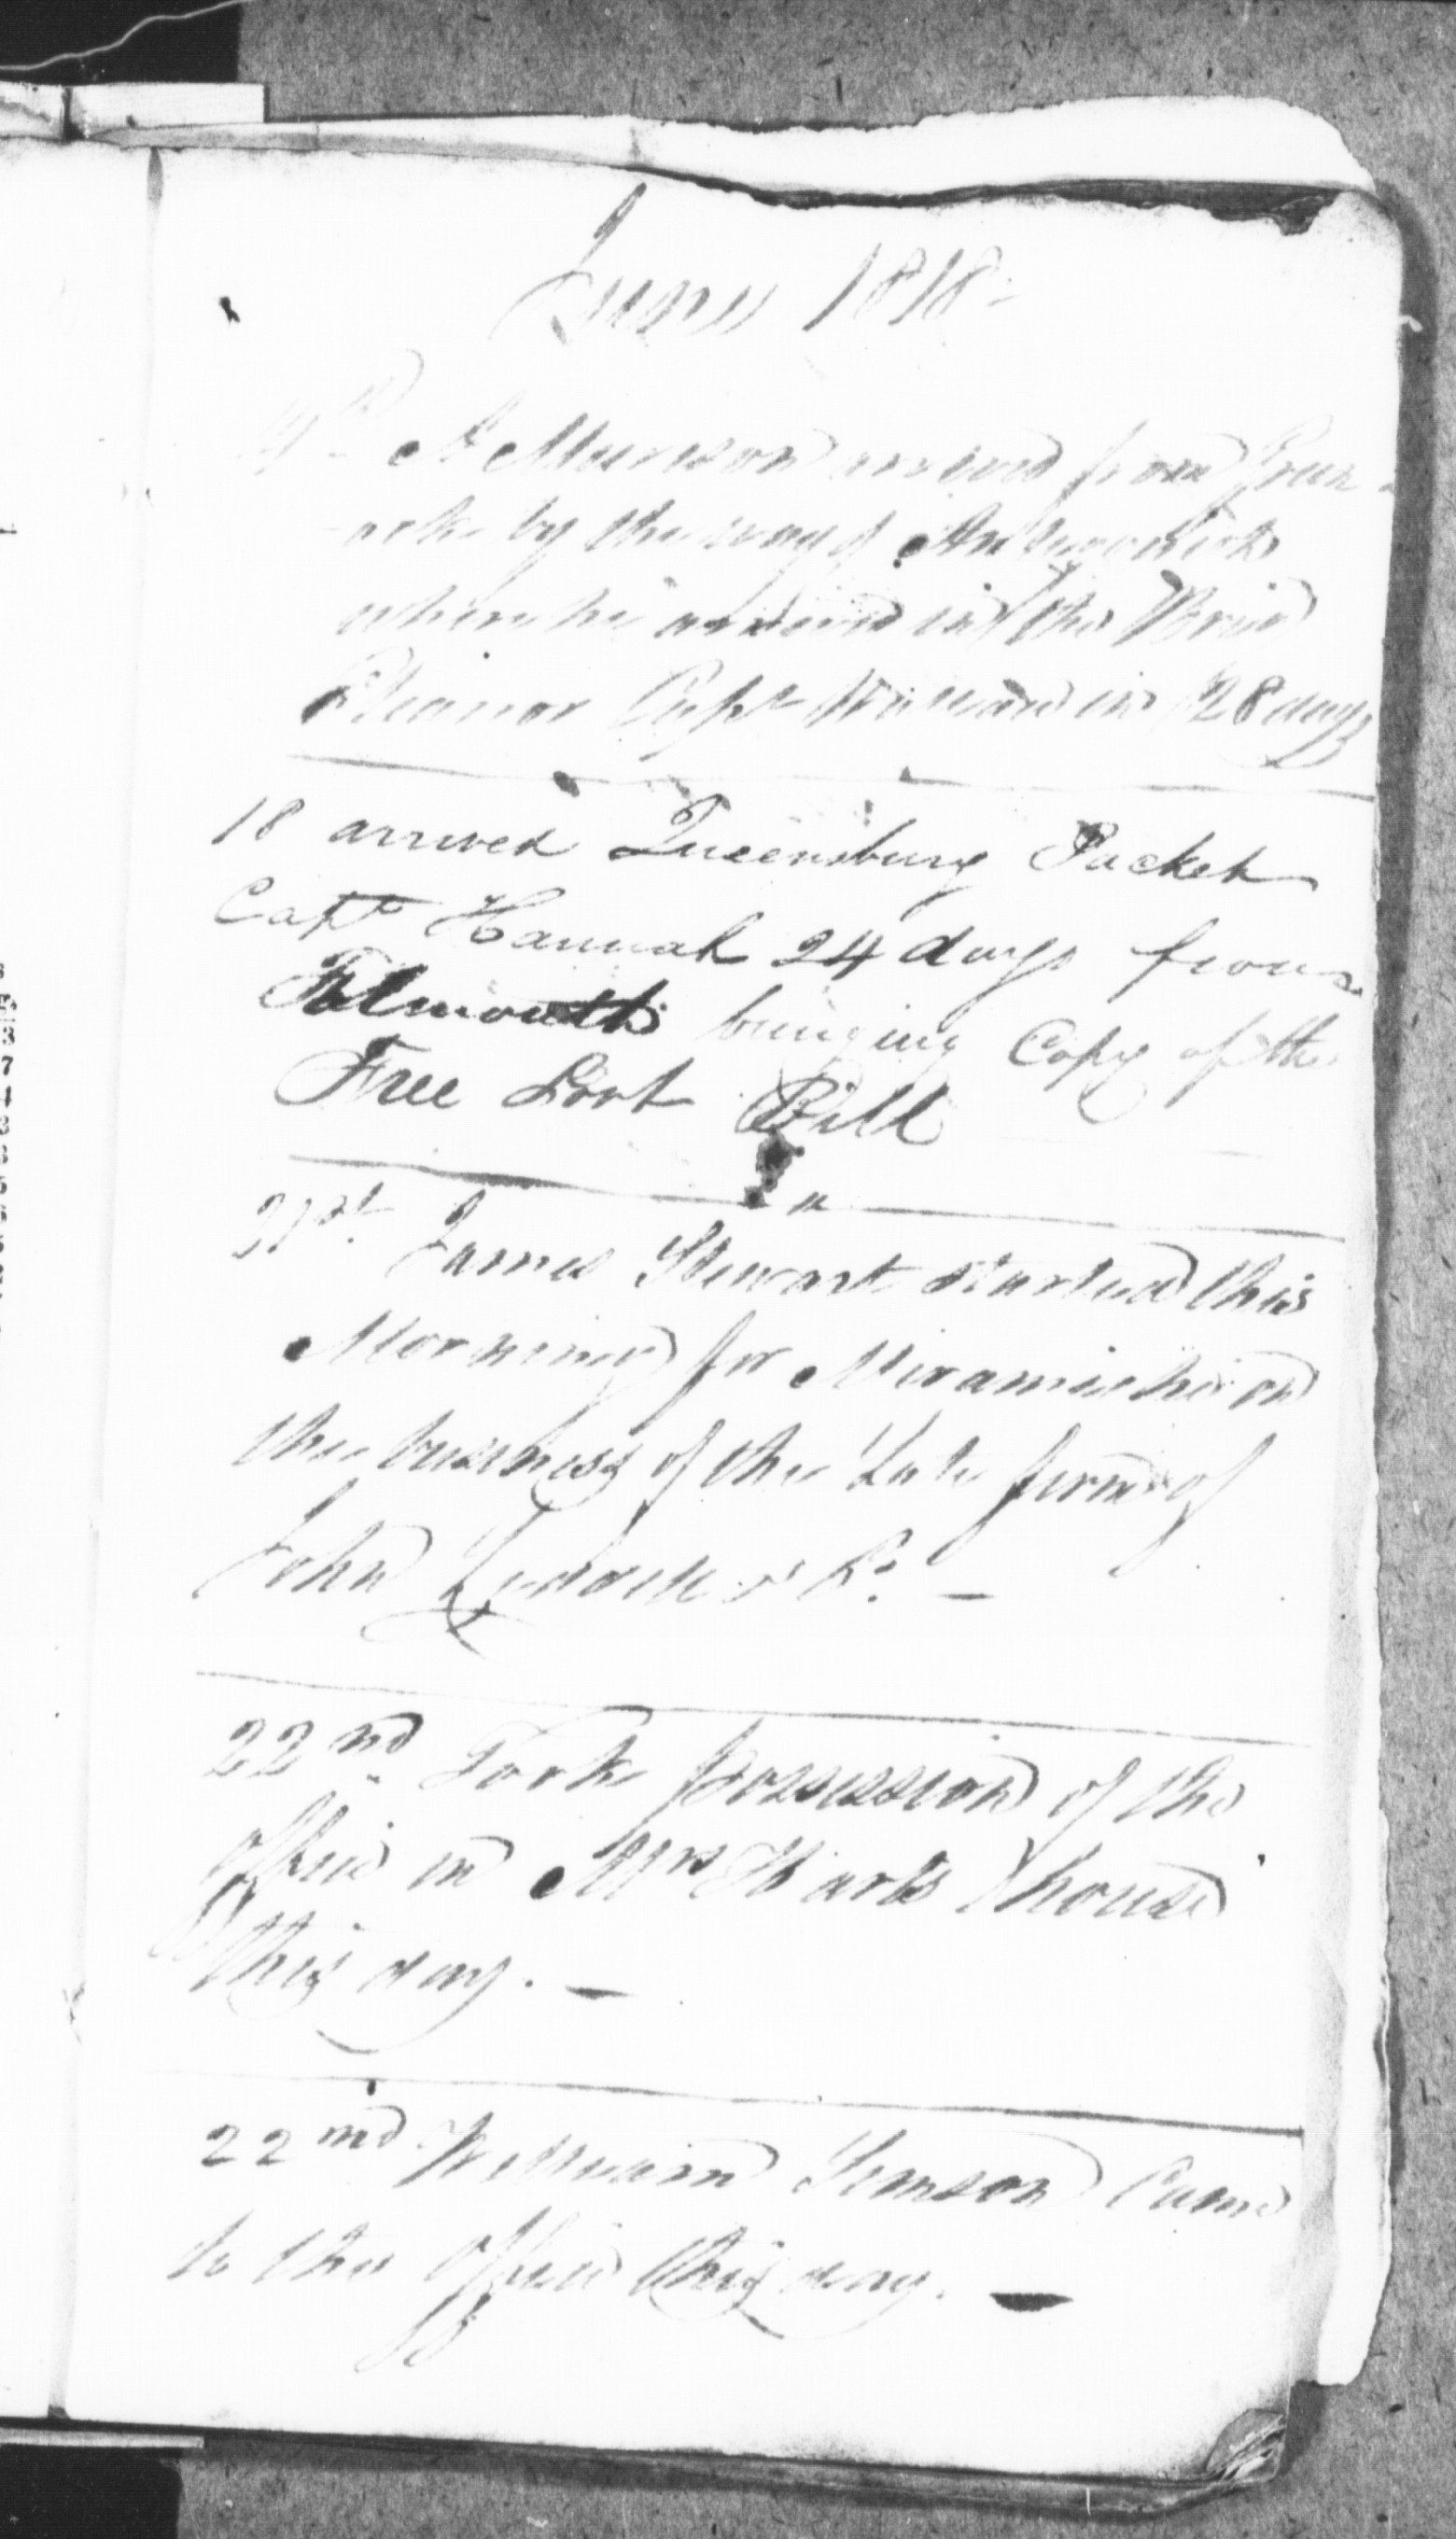 June 1818
A Murison arrived from Green-
-ock by the way of
where he arrived in the Brig
Eleanor Capt in 28 days
18 arrived Queensbury Packet
Capt Hannah 24 days from
Falmouth bringing Copy of the
Free Port Bill
21st James Stewart started this
Morning for Miramichi on
the business of the Late firm of
John & Co. —
22nd Took possession of the
office in Mrs Harts house
this day. —
22nd William Simson Came
to the Office this day. —